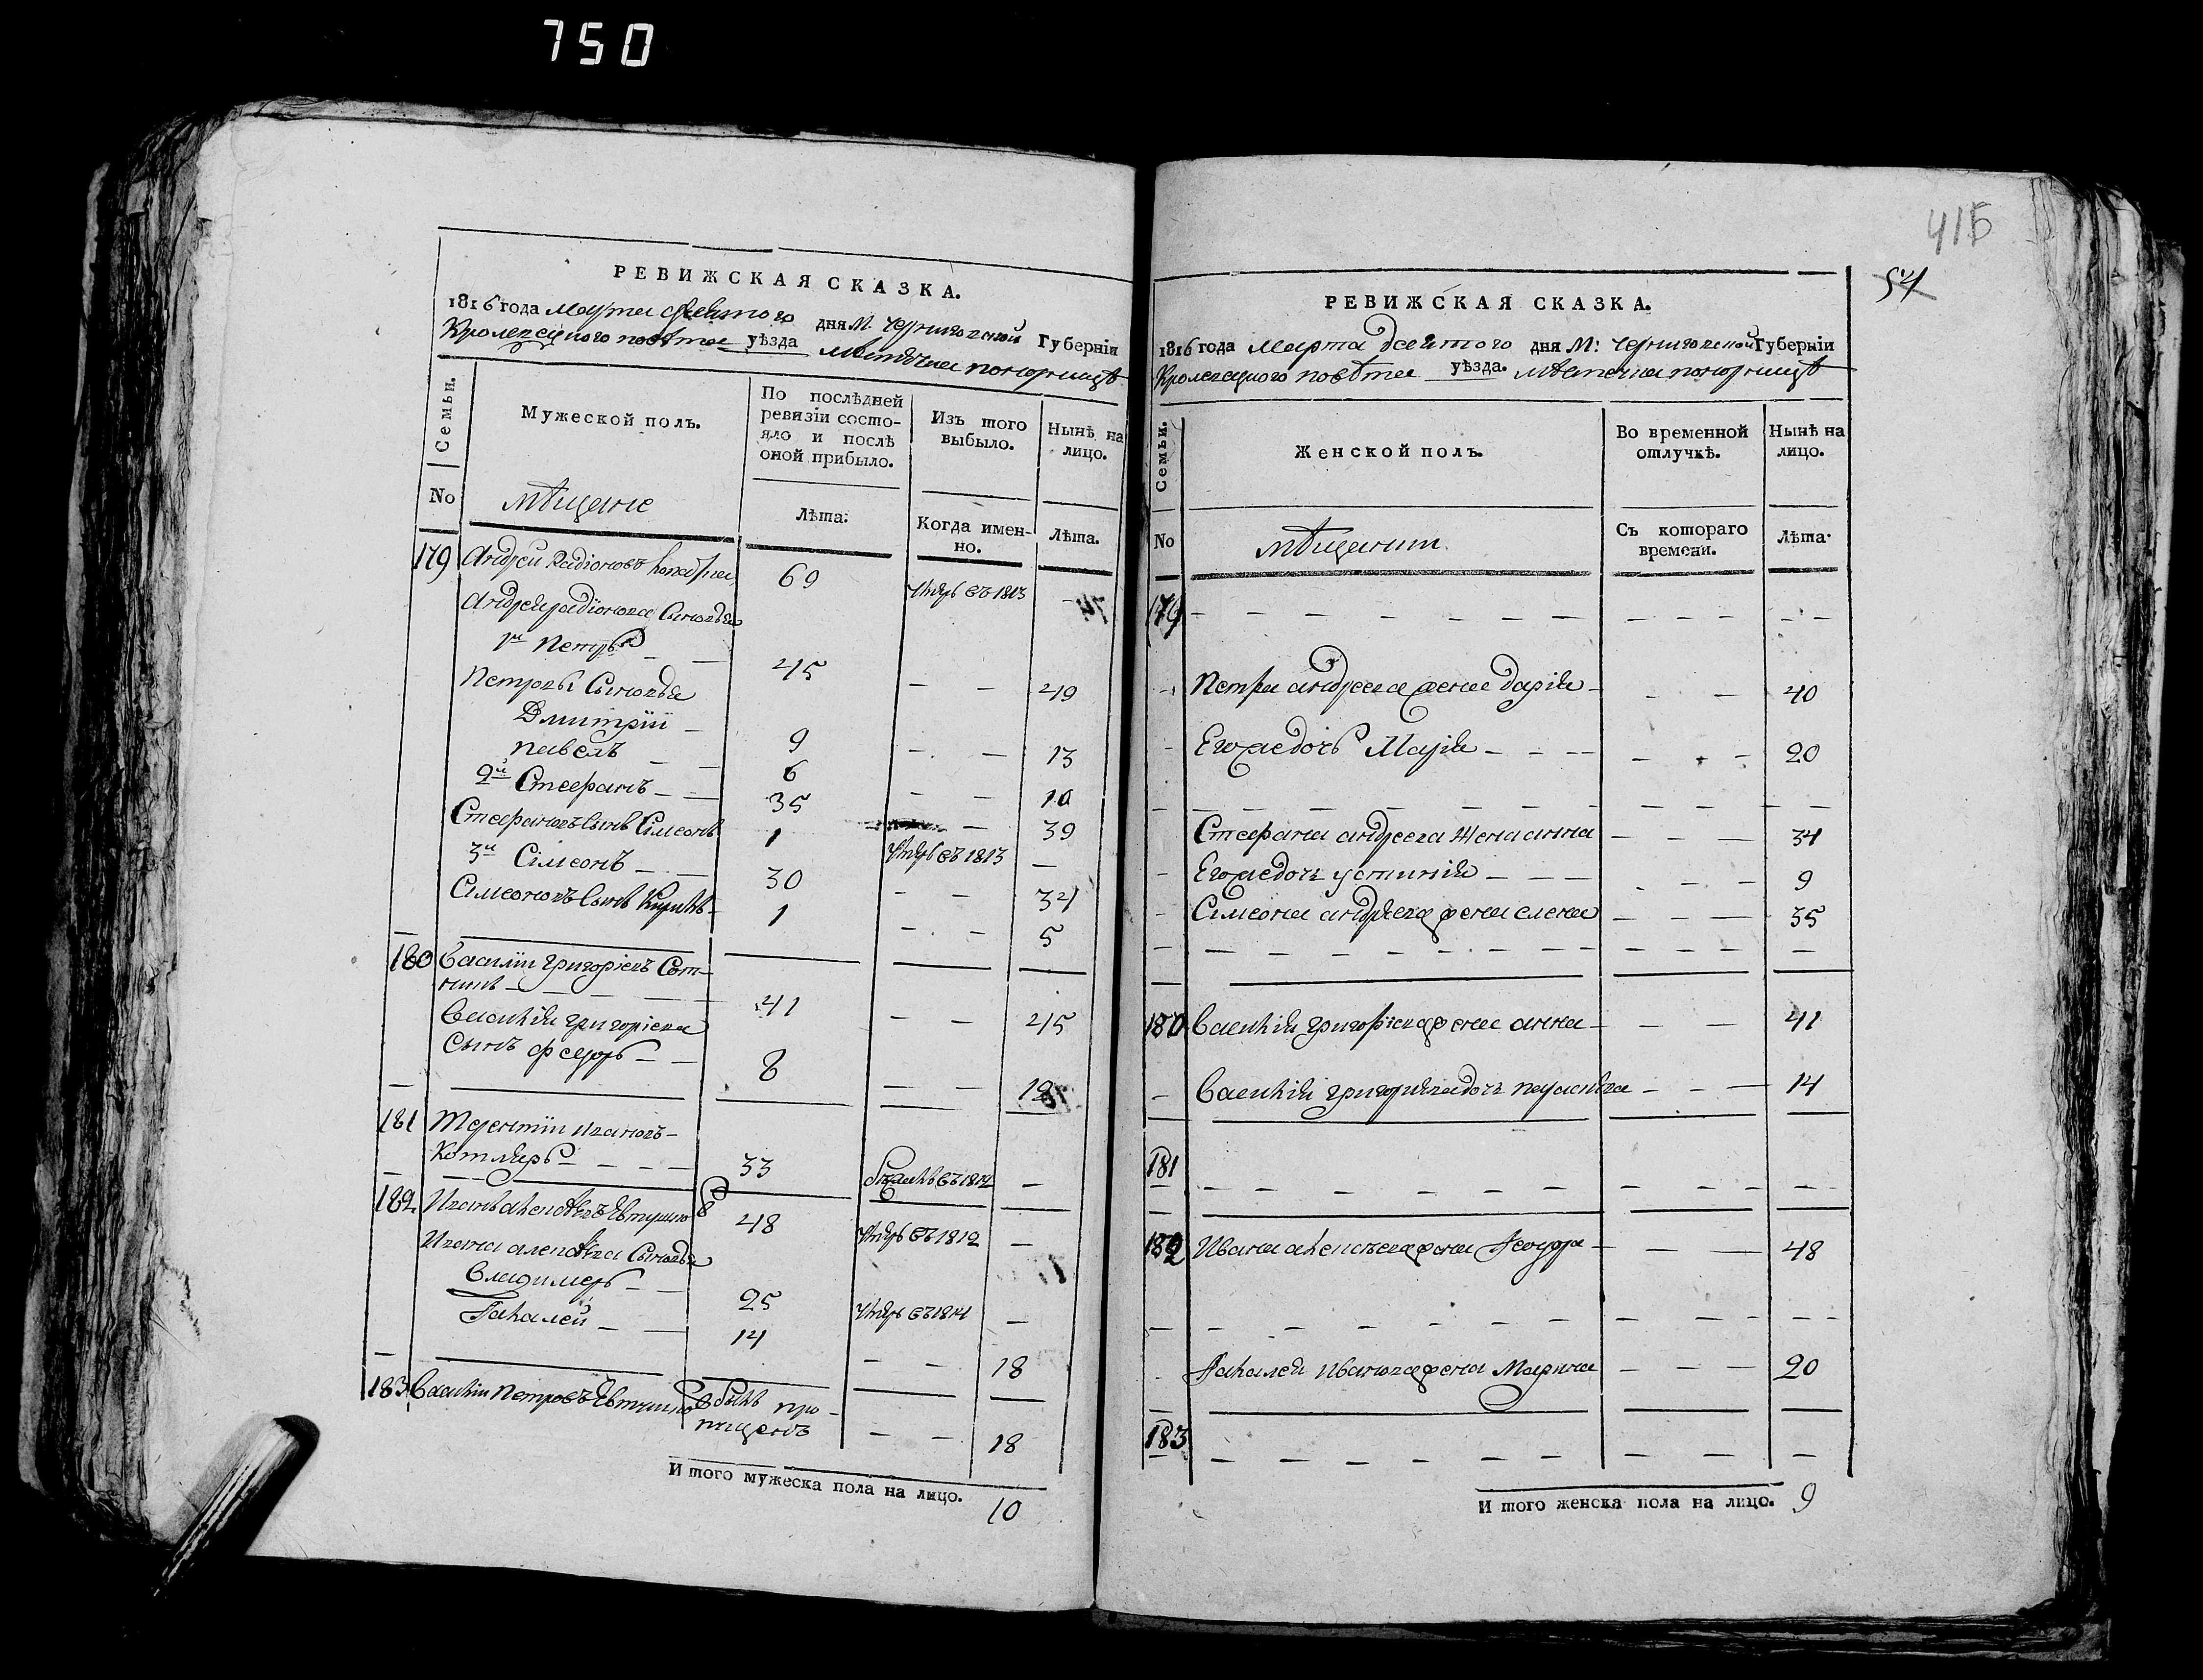 750
415
54
РЕВИЖСКАЯ СКАЗКА.
1816 года Марта дня М. Черниговской Губерніи
Кролевецкого повѣта уѣзда
Семьи.
Мужеской полъ.
По послѣдней ревизіи состояло и послѣ оной прибыло.
Изъ того выбыло.
Нынѣ на лицо.
No
мѣщане
Лѣта.
Когда именно.
Лѣта.
179 Андрей Радіоновъ 69 умръ въ 1813 —
Андрея радіонова Сыновья
1й Петръ — — 45 — — 49
Петровы Сыновья
Дмитрій — 9 — — 13
павелъ — — 6 — — 10
2й Стефанъ — — 35 — 39
Стефановъ сынъ Симеонъ 1 умръ въ 1813 —
3й Симеонъ — — 30 — — 34
Симеоновъ сынъ 1 — — 5
180 Василіи григоріевъ Сот-
никъ — — — — 41 — — 45
Василія григоріева
Сынъ федоръ — — 8 — — 12
181 Терентіи ивановъ —
Котляръ — — — — 33 въ 1812 —
182 Иванъ Евтушенко 48 умръ въ 1812 —
Ивана Сыновья
Владимеръ — — 25 умръ въ 1814 —
14 — — 18
183 Василіи Петровъ былъ про-
пущенъ — — 18
И того мужеска пола на лицо. 10
РЕВИЖСКАЯ СКАЗКА.
1816 года Марта дня М: Черниговской Губерніи
Кролевецкого повѣта уѣзда.
Семьи.
Женской полъ.
Во временной отлучкѣ.
Нынѣ на лицо.
No
мѣщанки
Съ котораго времени.
Лѣта.
179 — — — — — — — — — — — — —
- Петра андреева жена дарія — — — 40
- Его же дочь Марія — — — — — — 20
— — — — — — — — — — — — —
Стефана андреева жена анна — — — 34
- Его же дочь устинія — — — — — — 9
- Симеона андреева жена елена — — — 35
— — — — — — — — — — — — —
180 Василія григоріева жена анна — — — 41
- Василія григоріева дочь — — — 14
181
— — — — — — — — — — — — —
182 Ивана жена — — — 48
— — — — — — — — — — — — —
иванова жена Марина — — — 20
183
— — — — — — — — — —
И того женска пола на лицо. 9